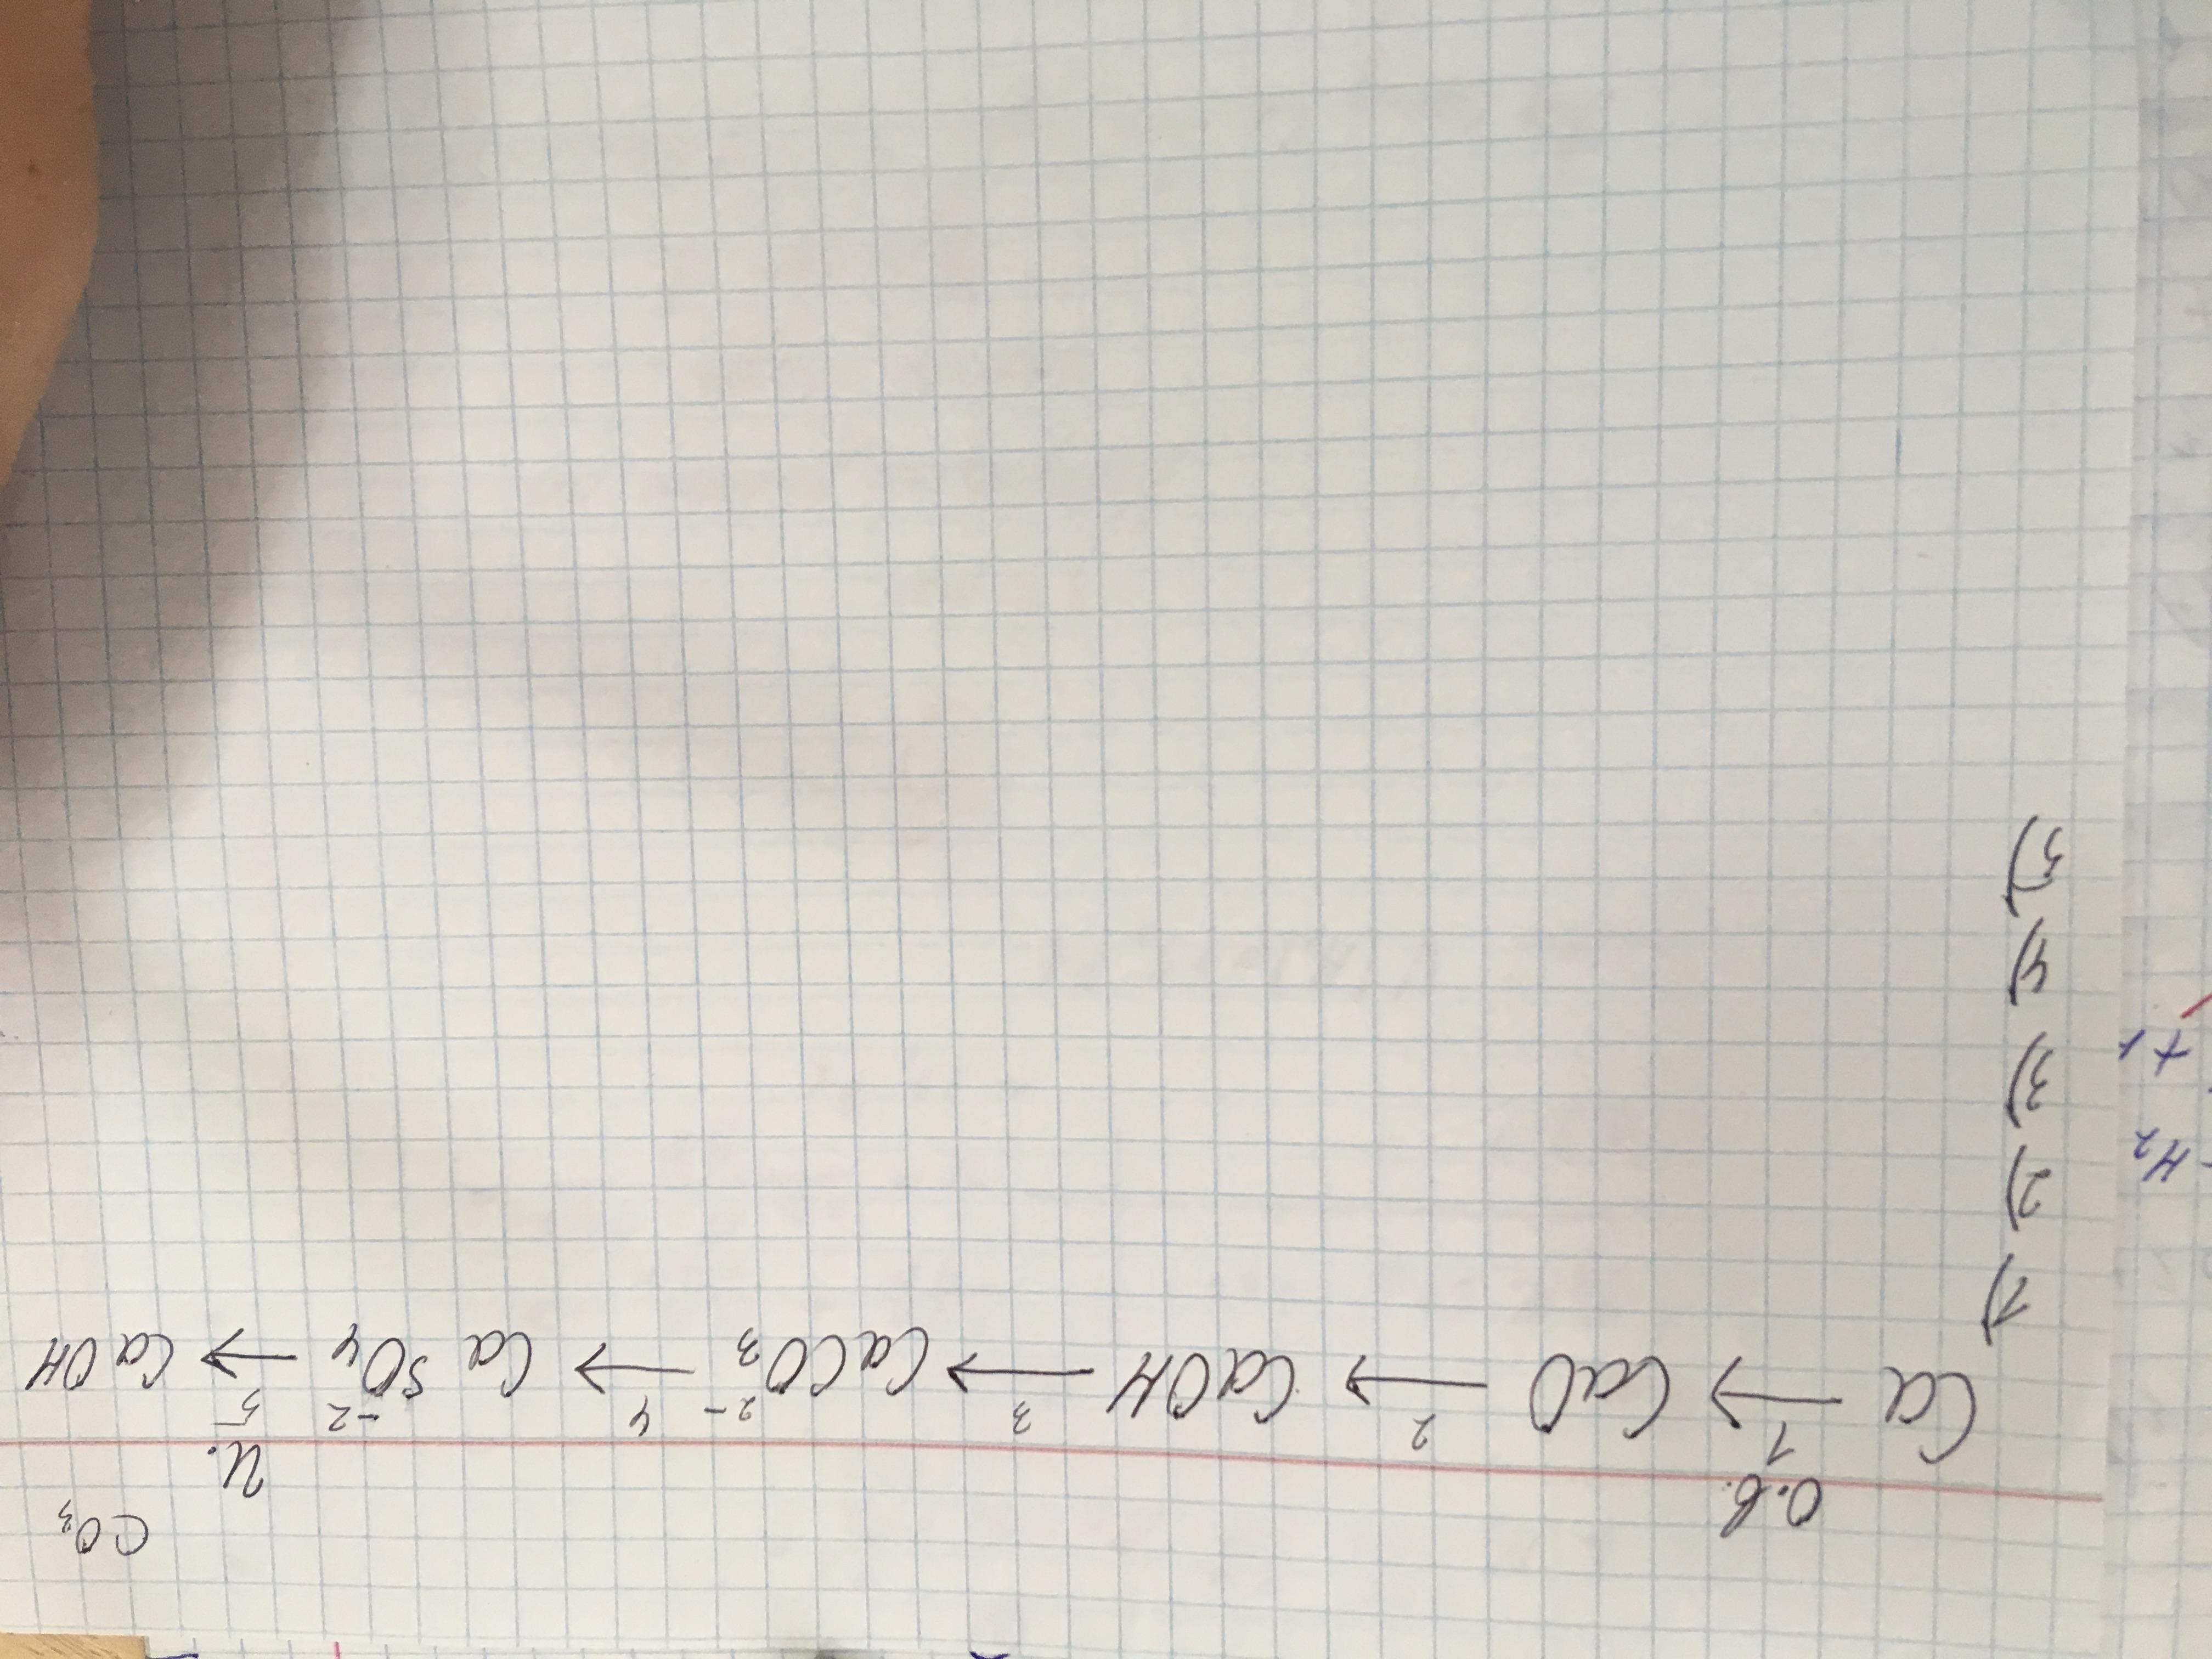 CO₃
О.в. И.
Ca →1 CaO →2 CaOH →3 CaCO₃²⁻ →4 CaSO₄⁻² →5 CaOH
1)
2)
3)
4)
5)
H₂